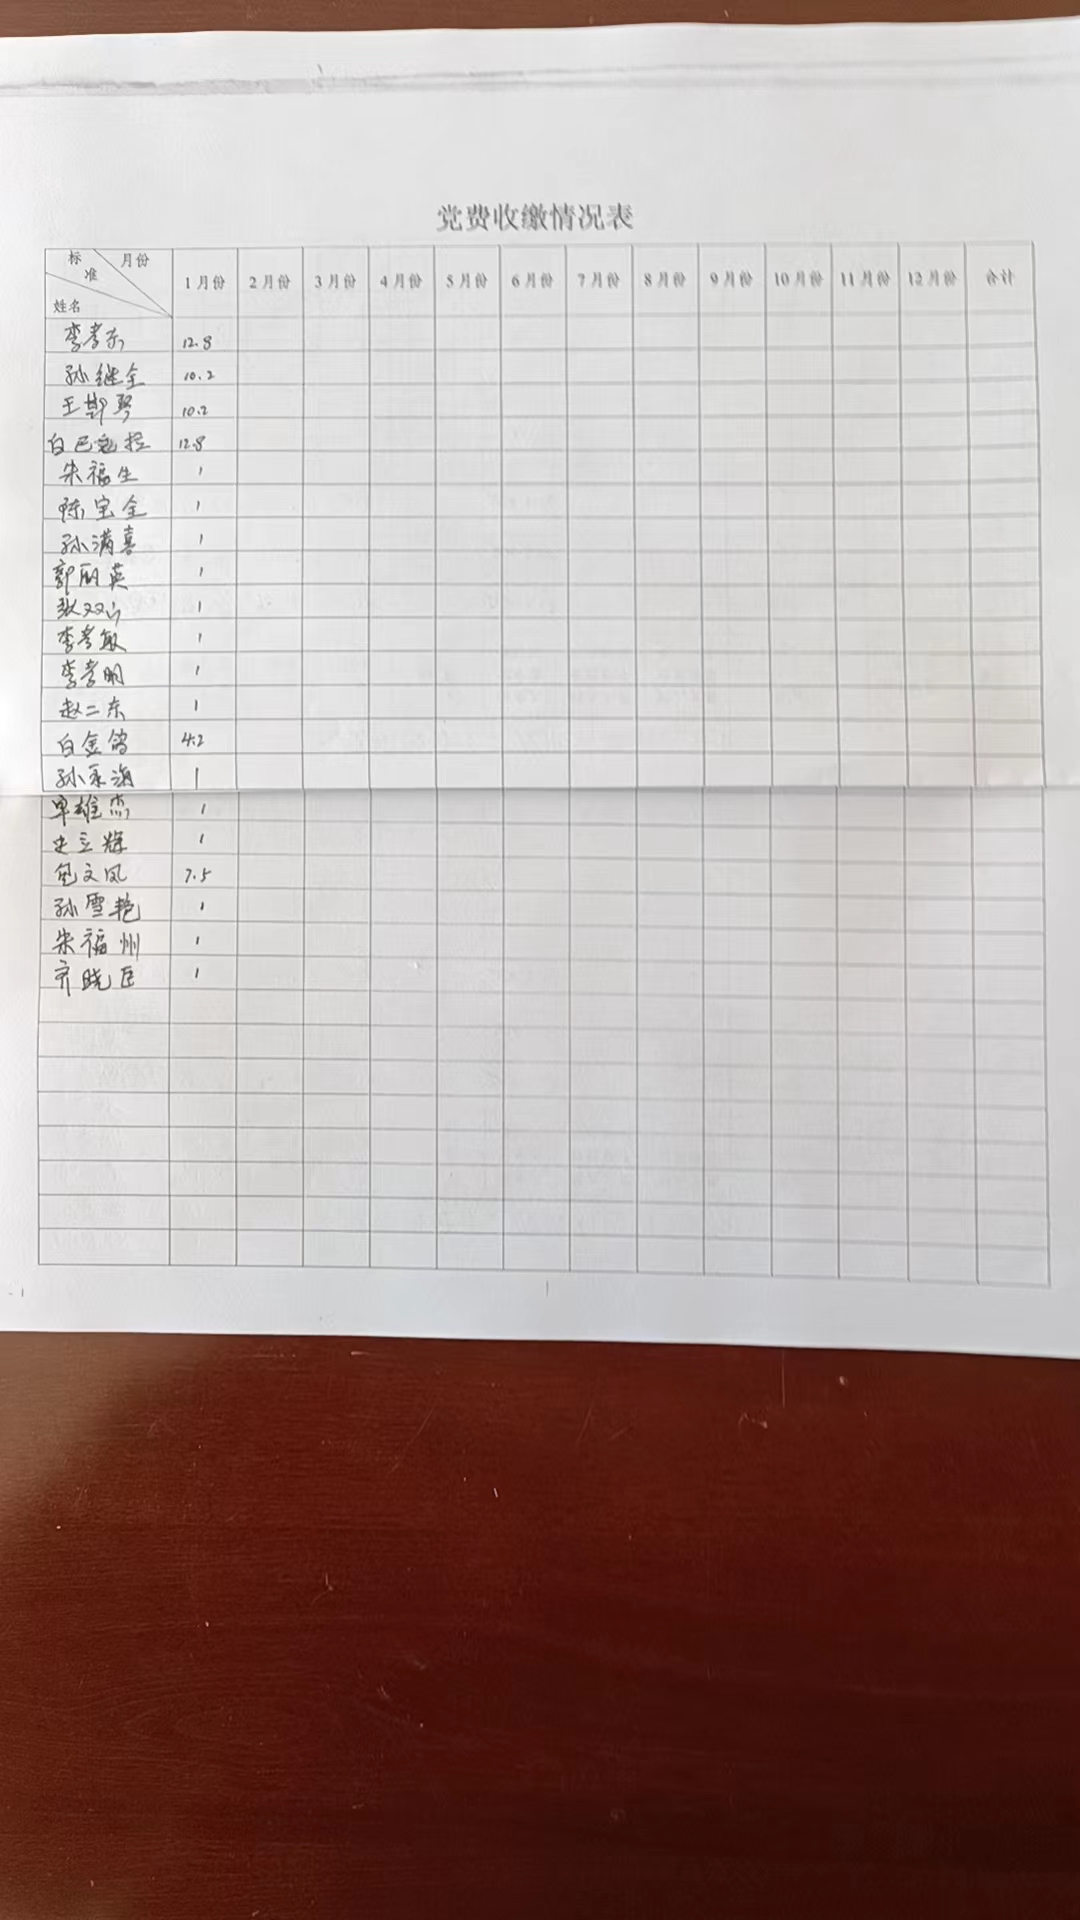 党费收缴情况表
标准 月份 姓名 1月份 2月份 3月份 4月份 5月份 6月份 7月份 8月份 9月份 10月份 11月份 12月份 合计
李孝东 12.8
孙继全 10.2
王斯琴 10.2
白巴 拉 12.8
朱福生 1
陈宝全 1
孙满喜 1
郭丽英 1
张双山 1
李孝敏 1
李孝明 1
赵二东 1
白金鸽 4.2
孙永海 1
单雄杰 1
史立辉 1
包文凤 7.5
孙雪艳 1
朱福州 1
齐晓臣 1